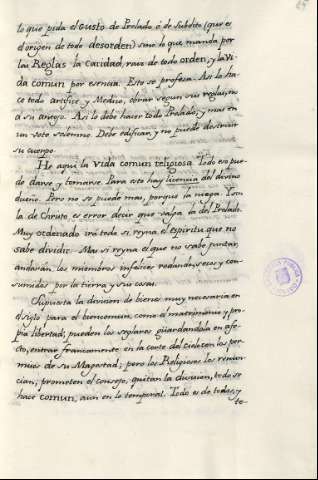 lo que pida el gusto de Prelado ó de Subdito (que es
el origen de todo desorden) sino lo que manda por
las Reglas la Caridad, raiz de todo orden, y la vi-
da comun por esencia. Esto se profesa. Asi lo ha-
ce todo artifice y Medico, obrar segun sus reglas, no
á su antojo. Asi lo debe hacer todo Prelado, y mas en
un voto solemne. Debe edificar, y no puede destruir
su cuerpo.
He aqui la vida comun religiosa. Todo eso pue-
de darse y tomarse. Para esto hay licencia del divino
dueño. Pero no se puede mas, porque la niega. Con
la de Christo, es error decir que valga la del Prelado.
Muy ordenado irá todo si reyna el espiritu que no
sabe dividir. Mas si reyna el que no sabe juntar,
andarán los miembros infelices rodando, secos y con-
sumidos por la tierra y su cosas.
Supuesta la division de bienes muy necesaria en
el siglo para el bien comun, como el matrimonio y pro-
pia libertad; pueden los seglares guardandola en efe-
cto, entrar francamente en la corte del cielo con los per-
misos de su Magestad; pero los Religiosos los renun-
cian, prometen el consejo, quitan la division, todo se
hace comun, aun en lo temporal. Todo es de todos, y